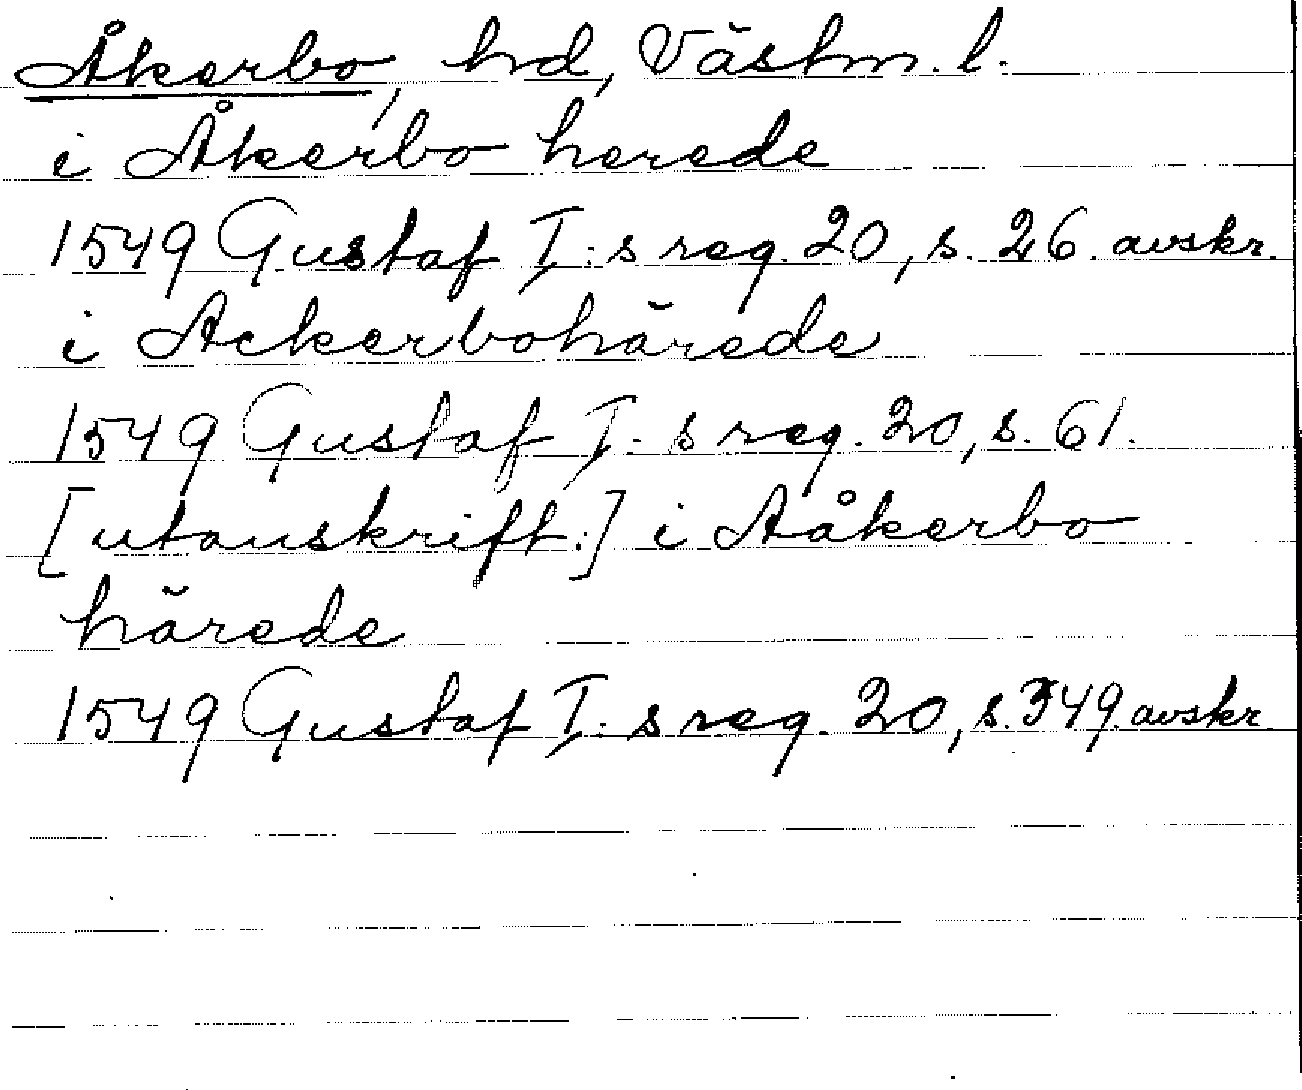 Åkerbo, hd, Västm. l.
i Åkerbo herede
1549 Gustaf I:s reg. 20, s. 26. avskr.
i Ackerbohärede
1549 Gustaf I:s reg. 20, s. 61.
[utanskrift:] i Aåkerbo
härede
1549 Gustaf I:s reg. 20, s. 349. avskr